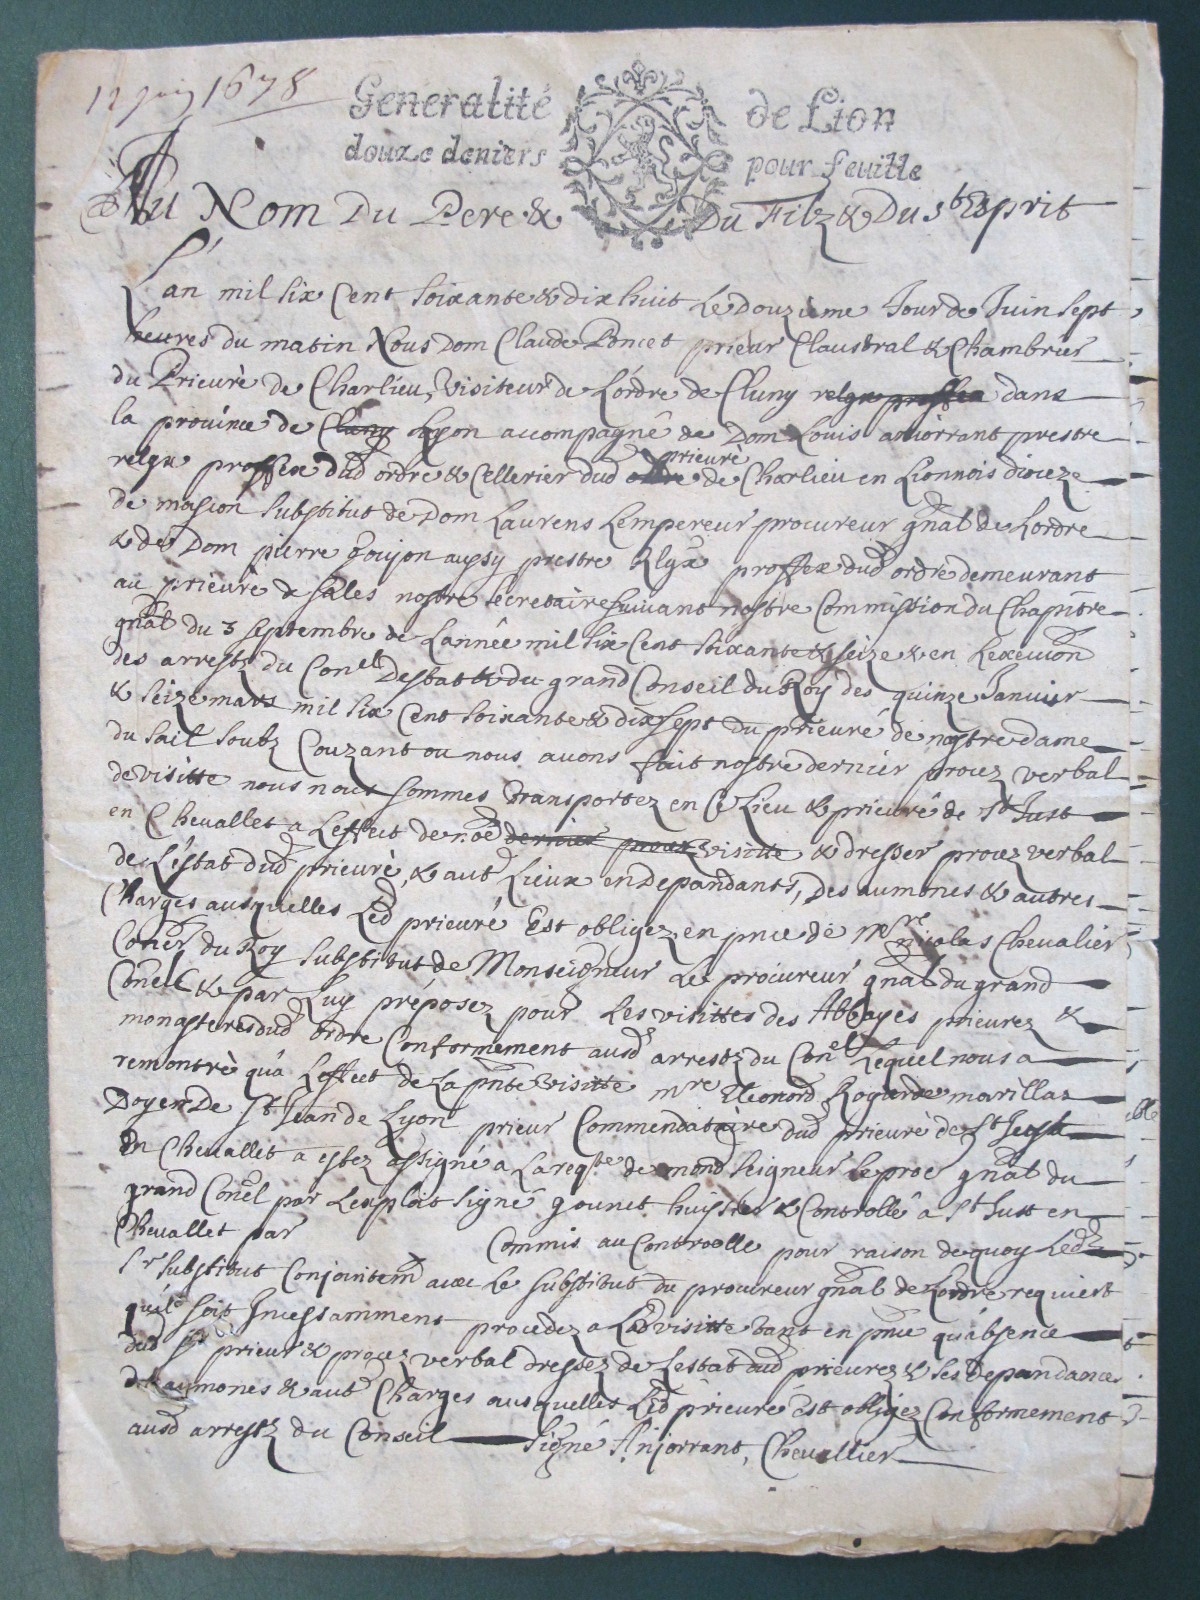 12 juin 1678
Generalité de Lion
douze deniers pour feuille
Au Nom Du Pere & Du Filz & Du St Esprit
L'an mil six Cent soixante & dix huit Le douzieme Jour de Juin sept
heures du matin Nous Dom Claude Poncet prieur Claustral & Chambrier
du Prieuré de Charlieu, Visiteur de L'ordre de Cluny relgx proffex dans
la prouince de Cluny Lyon accompagné de Dom Louis aniorrant prestre
prieuré
relgx proffex dud ordre & Cellerier dud ordre de Charlieu en Lionnois dioceze
de mascon substitut de Dom Laurens Lempereur procureur gnal de Lordre
& de Dom pierre Goujon aussy prestre Rlgx proffex dud ordre demeurant
au prieuré de sales nostre secretaire suiuant nostre Commission du Chapitre
gnal du 3 septembre de Lannée mil six Cent soixante & seize & en Lexecuion
des arrestz du Conel Destat & du grand Conseil du Roy des quinze Januier
& seize mars mil six Cent soixante & dix sept du prieuré de nostre dame
du sail soubz Couzant ou nous auons fait nostre dernier procez verbal
de visitte nous nous sommes transportez en Ce Lieu & prieuré de St Just
en Cheuallet a Leffect de noe dernier procez visitte & dresser procez verbal
de L'estat dud prieuré, & aut Lieux en Dependants, Des aumones & autres
Charges ausquelles Led prieuré Est obligez, en pnce de mre nicolas Cheualier
Coner du Roy substitut de Monseigneur Le procureur gnal du grand
Conel & par Luy préposez pour Les visittes des Abbayes prieurez &
monasteres dud ordre Conformement ausd arrestz du Conel Lequel nous a
remontré qu'a Leffect de La pnte visitte mre Eleonord Roger de marillac
Doyen De St Jean de Lyon prieur Commendataire dud prieuré de St Just
En Cheuallet a estez assigné a La reqte de mond seigneur le proc gnal du
grand Conel par Lexploit signé gounet huissier & Controllé a St Just en
Cheuallet par Commis au Controolle pour raison de quoy Led
Sr substitut Conjointemt auec Le substitut du procureur gnal de Lordre requiert
quil soit Incessamment procedez a Lad visitte tant en pnce qu'absence
dud Sr prieur & procez verbal dressez de Lestat dud prieurez & ses dependances
des aumones & aut Charges ausquelles Led prieuré est obligez Conformement
ausd arrestz du Conseil signé Anjorrant, Cheuallier